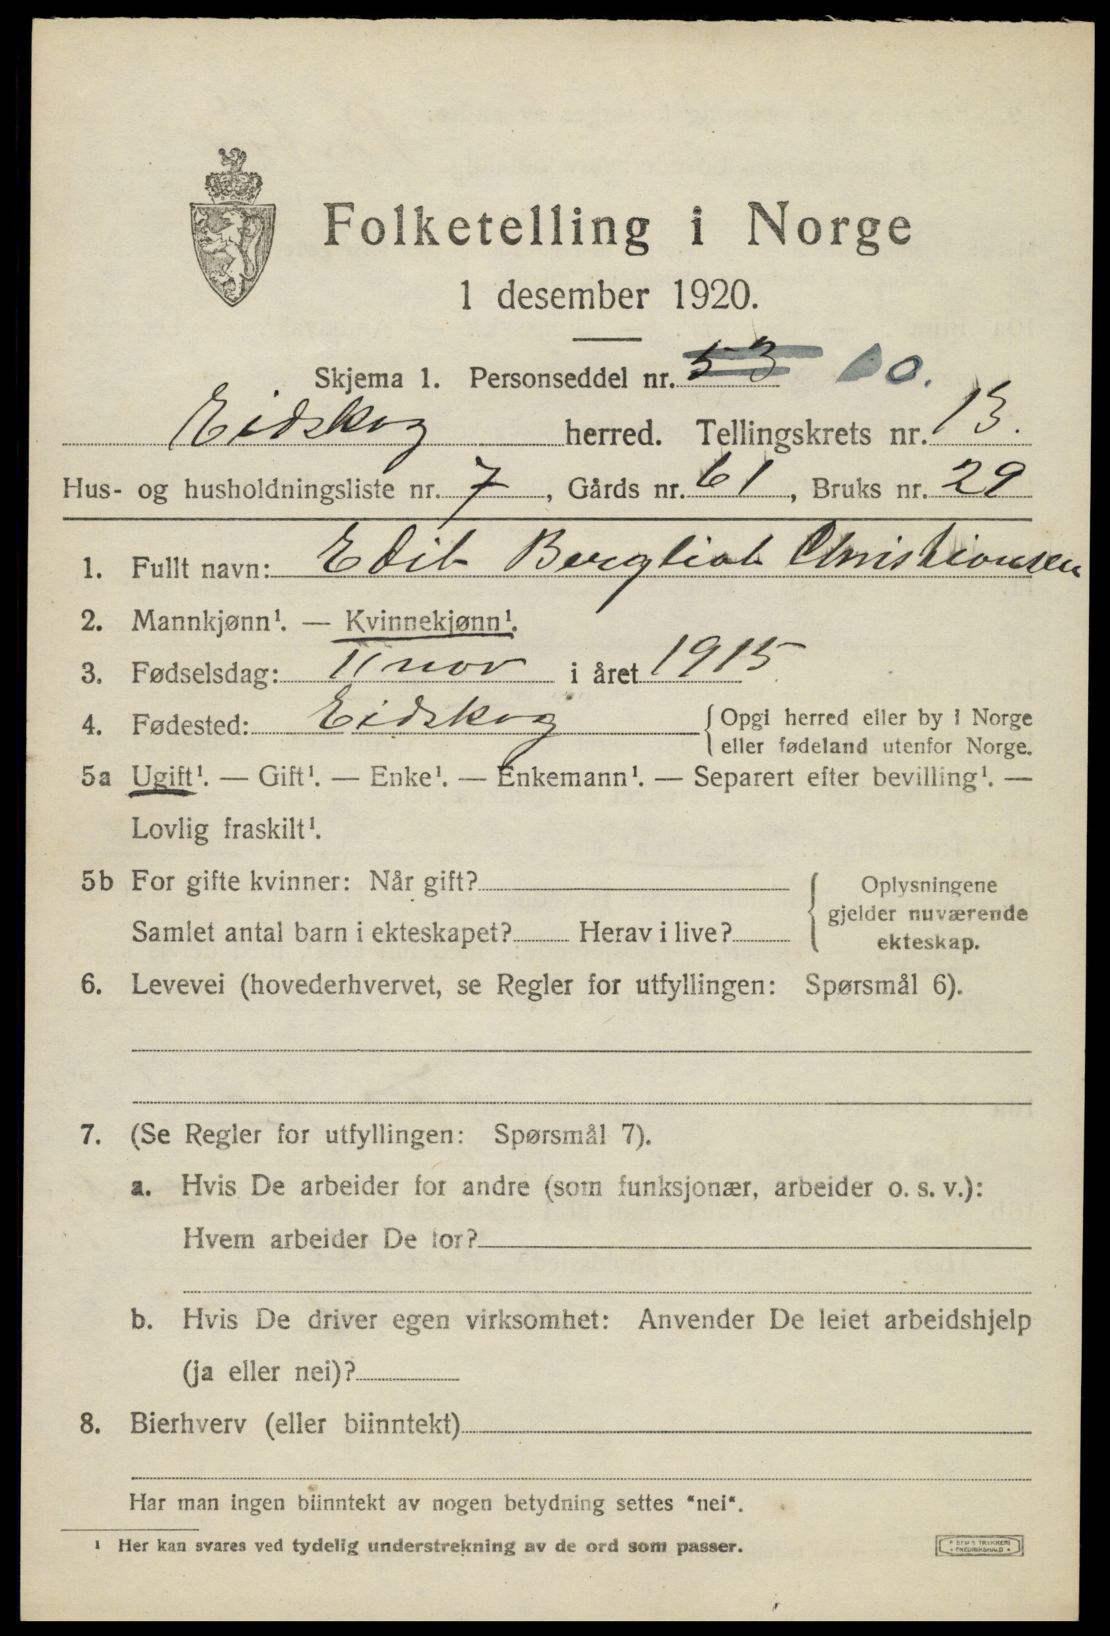 Folketelling i Norge
1 desember 1920.
Skjema 1. Personseddel nr. 53 60.
Eidskog herred. Tellingskrets nr. 13.
Hus- og husholdningsliste nr. 7, Gårds nr. 61, Bruks nr. 29
1. Fullt navn: Edit Bergliot Christiansen
2. Mannkjønn¹. — Kvinnekjønn¹.
3. Fødselsdag: 11 nov i året 1915
4. Fødested: Eidskog { Opgi herred eller by i Norge
eller fødeland utenfor Norge.
5a Ugift¹. — Gift¹. — Enke¹. — Enkemann¹. — Separert efter bevilling¹. —
Lovlig fraskilt¹.
5b For gifte kvinner: Når gift? { Oplysningene
gjelder nuværende
Samlet antal barn i ekteskapet? Herav i live? ekteskap.
6. Levevei (hovederhvervet, se Regler for utfyllingen: Spørsmål 6).
7. (Se Regler for utfyllingen: Spørsmål 7).
a. Hvis De arbeider for andre (som funksjonær, arbeider o. s. v.):
Hvem arbeider De for?
b. Hvis De driver egen virksomhet: Anvender De leiet arbeidshjelp
(ja eller nei)?
8. Bierhverv (eller biinntekt)
Har man ingen biinntekt av nogen betydning settes "nei".
¹ Her kan svares ved tydelig understrekning av de ord som passer.